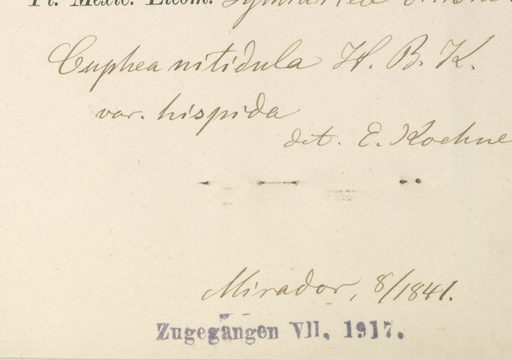 Cuphea nitidula H. B. K.
var. hispida
det. E. Koehne
Mirador, 8/1841.
Zugegangen VII. 1917.